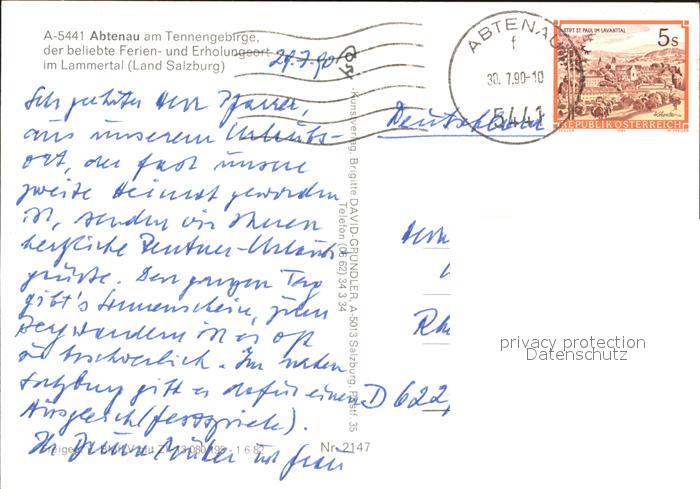 A-5441 Abtenau am Tennengebirge,
der beliebte Ferien- und Erholungsort
im Lammertal (Land Salzburg)
29.7.90
ABTENAU
30. 7.90-10
5441
STIFT ST. PAUL IM LAVANTTAL
5s
REPUBLIK ÖSTERREICH
Sehr geehrter Herr Pfarrer,
aus unserem Urlaubs-
ort, der fast unsere
zweite Heimat geworden
ist, senden wir Ihnen
herzliche Rentner-Urlaubs-
grüße. Den ganzen Tag
gibt's Sonnenschein, zum
Bergwandern ist es oft
zu beschwerlich. Im nahen
Salzburg gibt es dafür einen
Ausgleich (Festspiele).
Ihr
und Frau
Deutschland
Herrn
Rhe
D 622
Kunstverlag Brigitte DAVID-GRUNDLER, A-5013 Salzburg, Postf. 35
Telefon (0 62) 34 3 34
Nr. 2147
privacy protection
Datenschutz